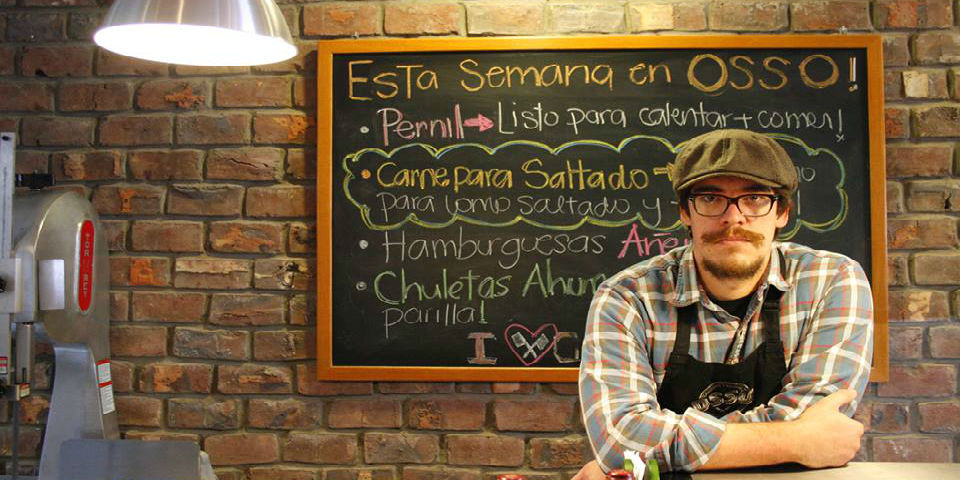 Esta Semana en OSSO!
• Pernil → Listo para calentar + comer!
• Carne para Saltado →
para lomo saltado y
• Hamburguesas
• Chuletas
parilla!
I
OSSO